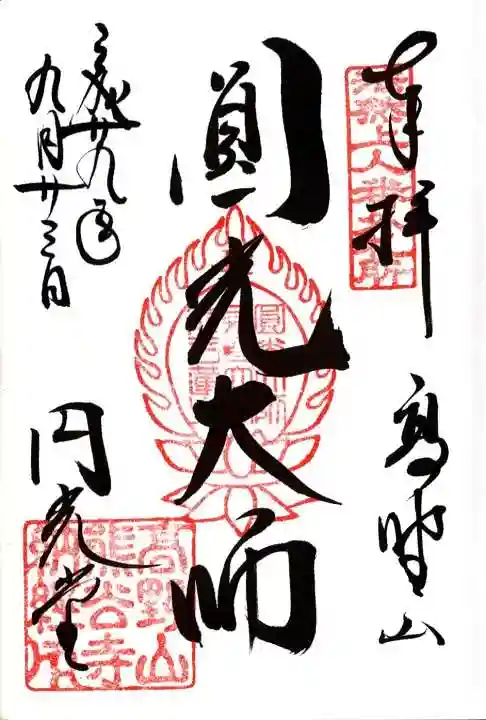 奉拝
高野山
圓光大師
平成廿九年
九月廿三日
円光堂
圓光大師
高野山
熊谷寺